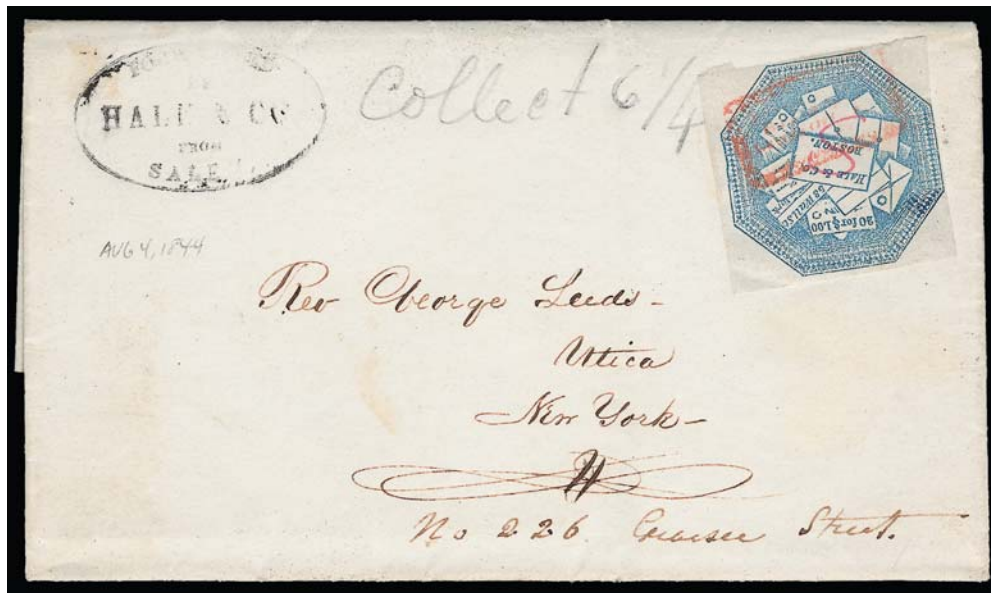 HALE & CO
FROM
SALEM
Collect 6 1/4
AUG 4, 1844
HALE & Co.
BOSTON.
20 for $1.00
Rev George Leeds -
Utica
New York -
No 226 Genesee Street.